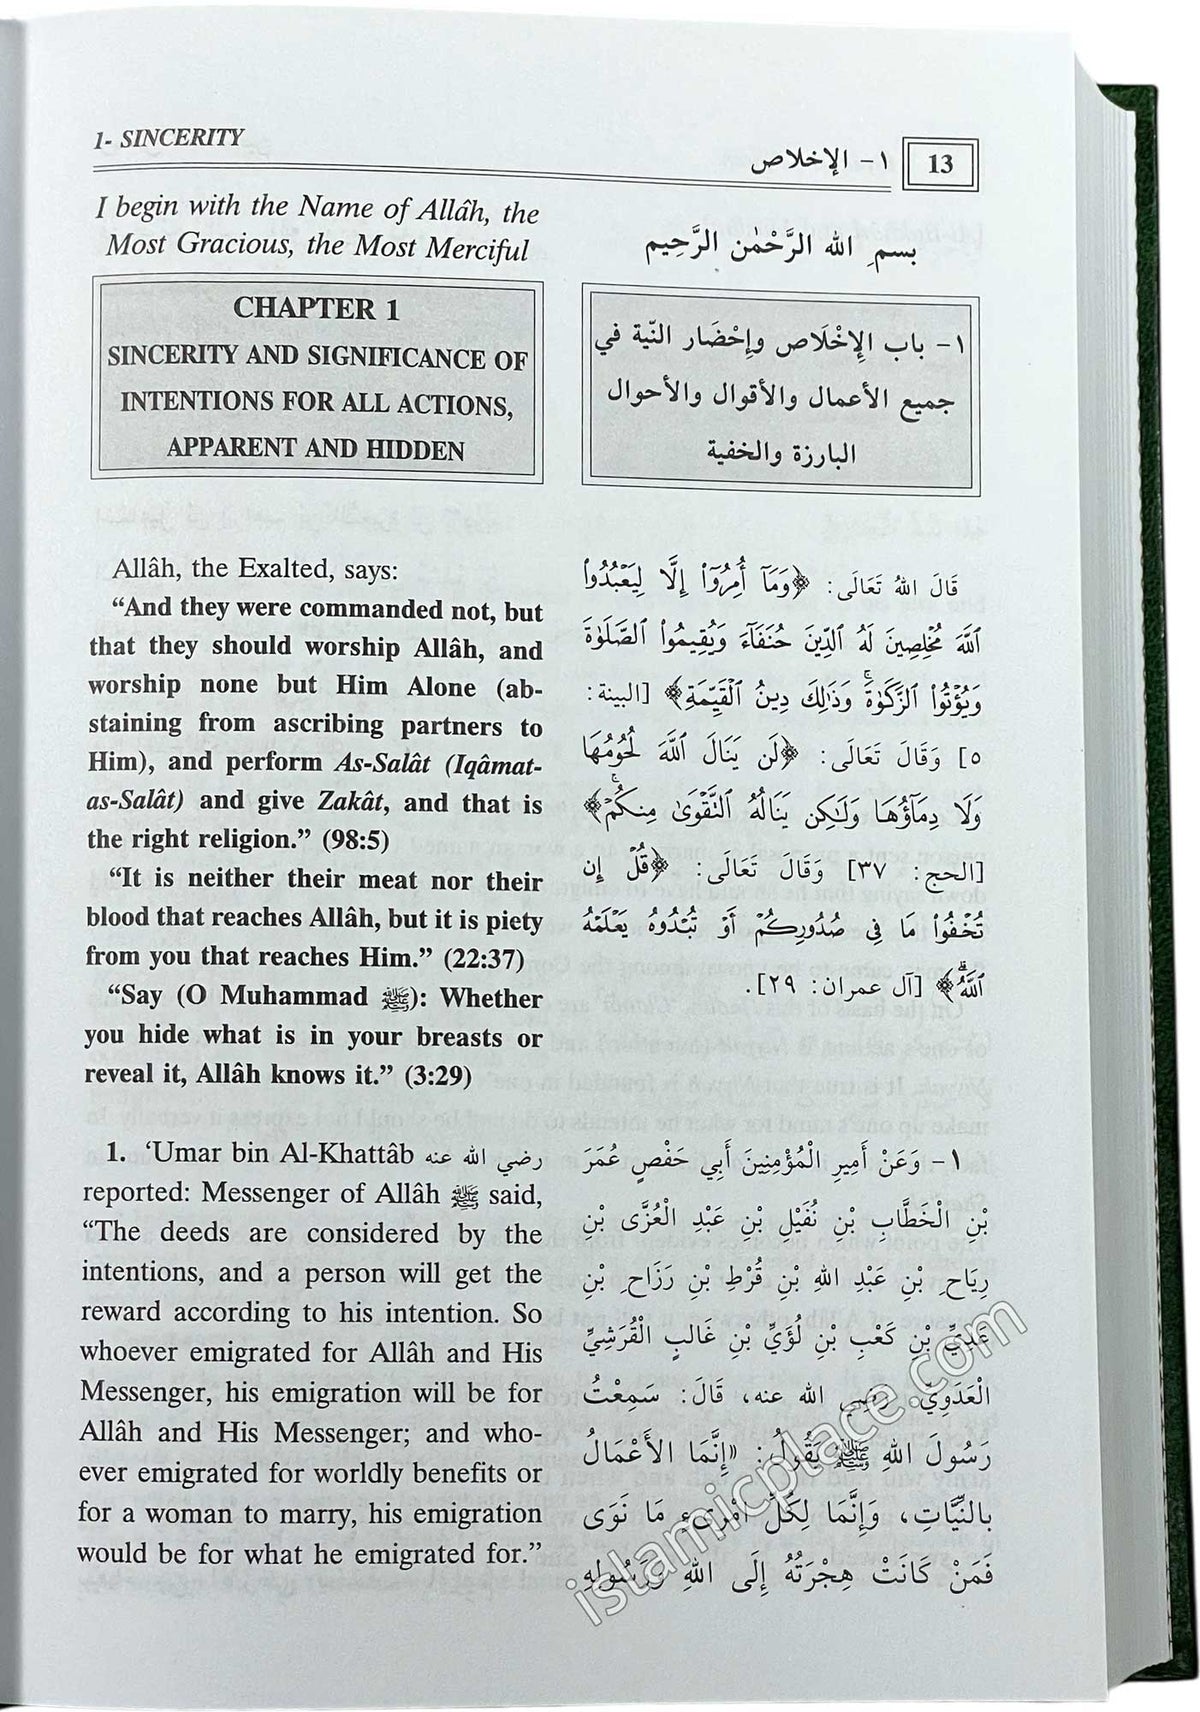 1- SINCERITY
١- الإخلاص
13
I begin with the Name of Allâh, the
Most Gracious, the Most Merciful
بسمِ الله الرَّحْمٰن الرَّحِيم
CHAPTER 1
SINCERITY AND SIGNIFICANCE OF
INTENTIONS FOR ALL ACTIONS,
APPARENT AND HIDDEN
١- باب الإِخْلَاص وإِحْضَار النّية في
جميع الأعمال والأقوال والأحوال
البارزة والخفية
Allâh, the Exalted, says:
“And they were commanded not, but
that they should worship Allâh, and
worship none but Him Alone (ab-
staining from ascribing partners to
Him), and perform As-Salât (Iqâmat-
as-Salât) and give Zakât, and that is
the right religion.” (98:5)
“It is neither their meat nor their
blood that reaches Allâh, but it is piety
from you that reaches Him.” (22:37)
“Say (O Muhammad ﷺ): Whether
you hide what is in your breasts or
reveal it, Allâh knows it.” (3:29)
قَالَ اللهُ تَعَالَى: ﴿وَمَآ أُمِرُوٓا۟ إِلَّا لِيَعْبُدُوا۟
ٱللَّهَ مُخْلِصِينَ لَهُ ٱلدِّينَ حُنَفَآءَ وَيُقِيمُوا۟ ٱلصَّلَوٰةَ
وَيُؤْتُوا۟ ٱلزَّكَوٰةَ ۚ وَذَٰلِكَ دِينُ ٱلْقَيِّمَةِ﴾ [البينة:
٥] وَقَالَ تَعَالَى: ﴿لَن يَنَالَ ٱللَّهَ لُحُومُهَا
وَلَا دِمَآؤُهَا وَلَٰكِن يَنَالُهُ ٱلتَّقْوَىٰ مِنكُمْ ۚ﴾
[الحج: ٣٧] وَقَالَ تَعَالَى: ﴿قُلْ إِن
تُخْفُوا۟ مَا فِى صُدُورِكُمْ أَوْ تُبْدُوهُ يَعْلَمْهُ
ٱللَّهُ ۗ﴾ [آل عمران: ٢٩].
1. ‘Umar bin Al-Khattâb رضي الله عنه
reported: Messenger of Allâh ﷺ said,
“The deeds are considered by the
intentions, and a person will get the
reward according to his intention. So
whoever emigrated for Allâh and His
Messenger, his emigration will be for
Allâh and His Messenger; and who-
ever emigrated for worldly benefits or
for a woman to marry, his emigration
would be for what he emigrated for.”
١- وَعَنْ أَمِيرِ الْمُؤْمِنِينَ أَبِي حَفْصٍ عُمَرَ
بْنِ الْخَطَّابِ بْنِ نُفَيْلِ بْنِ عَبْدِ الْعُزَّى بْنِ
رِيَاحِ بْنِ عَبْدِ اللهِ بْنِ قُرْطِ بْنِ رَزَاحِ بْنِ
عَدِيِّ بْنِ كَعْبِ بْنِ لُؤَيِّ بْنِ غَالِبٍ الْقُرَشِيِّ
الْعَدَوِيِّ، رضي الله عنه، قَالَ: سَمِعْتُ
رَسُولَ اللهِ ﷺ يَقُولُ: «إِنَّمَا الأَعْمَالُ
بِالنِّيَّاتِ، وَإِنَّمَا لِكُلِّ امْرِىءٍ مَا نَوَى
فَمَنْ كَانَتْ هِجْرَتُهُ إِلَى اللهِ وَرَسُولِهِ
islamicplace.com